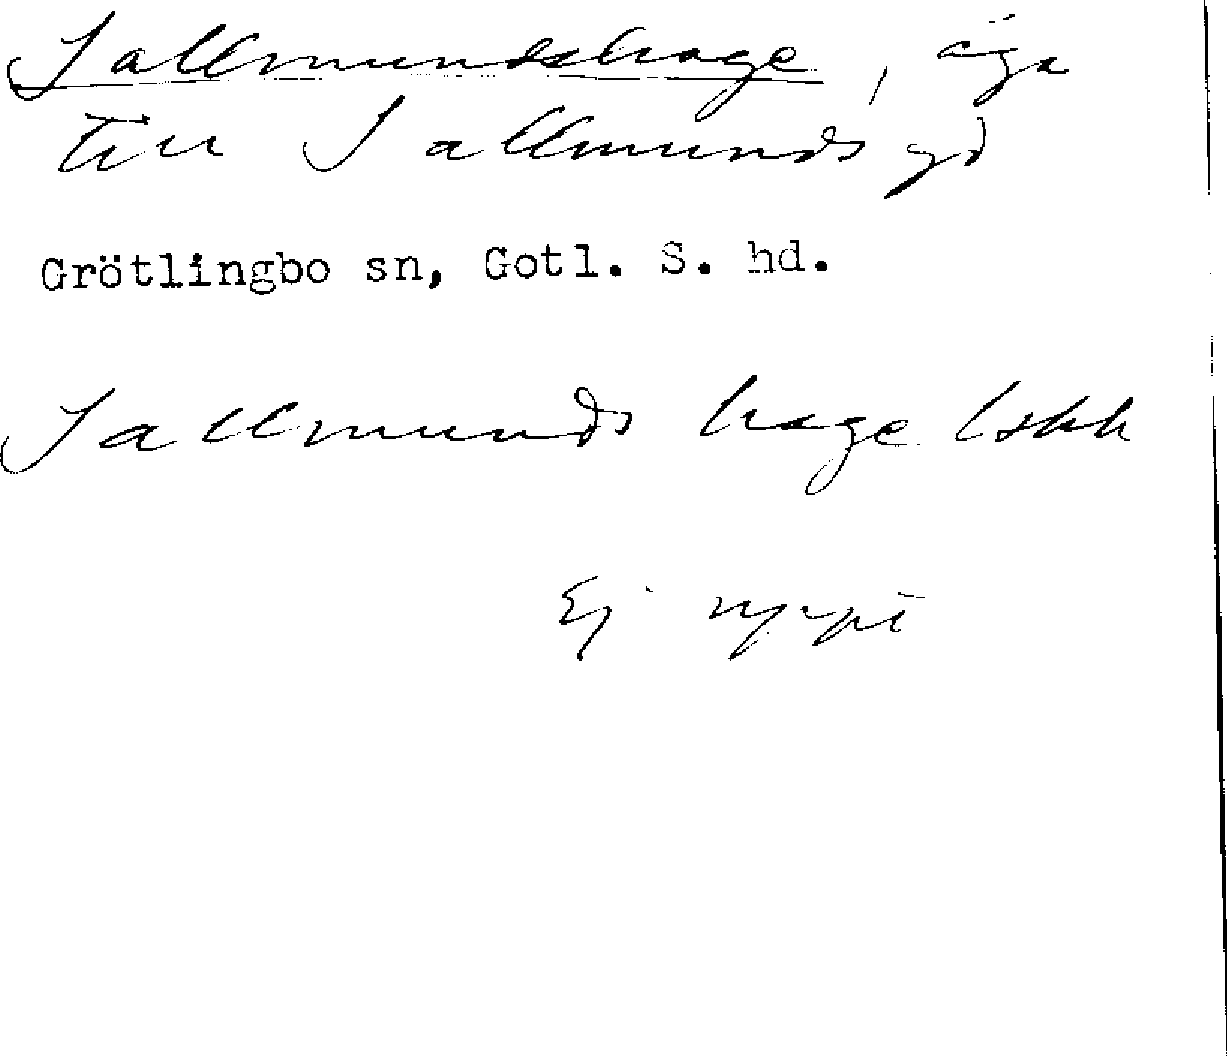 Sallmundshage, äga
till Sallmunds gd
Grötlingbo sn, Gotl. S. hd.
Sallmunds hage
Ej